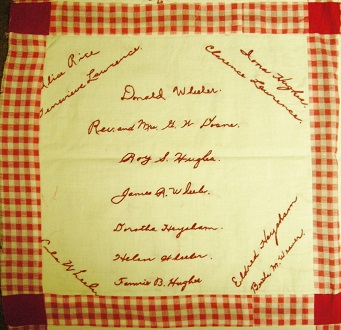 Alice Rice
Genevieve Lawrence.
Irma Hughes
Clarence Lawrence.
Donald Wheeler.
Rev. and Mrs. G. W. Doane.
Roy S. Hughes
James R. Wheeler.
Dorotha Heysham.
Helen Wheeler.
Fannie B. Hughes
Wheeler
Eldred Heysham
M. Weaver.